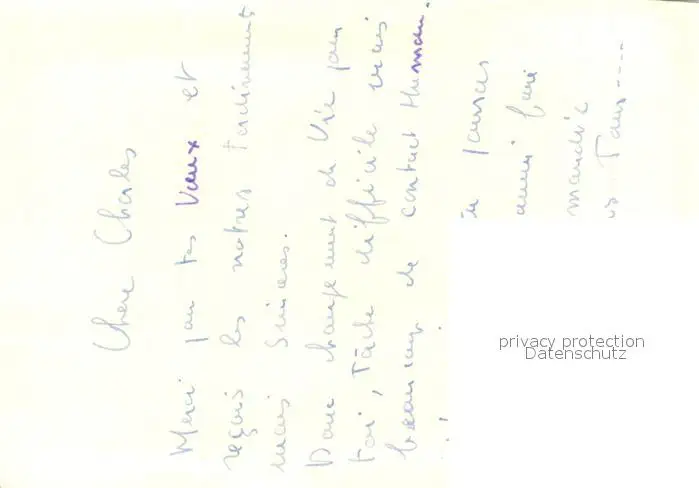 Cher Charles
Merci pour tes Vœux et
reçois les notres tardivement
mais sincères.
Donc changement de Vie pour
toi, Tâche difficile mais
beaucoup de contact Human.
tu penses
aussi
privacy protection
Datenschutz